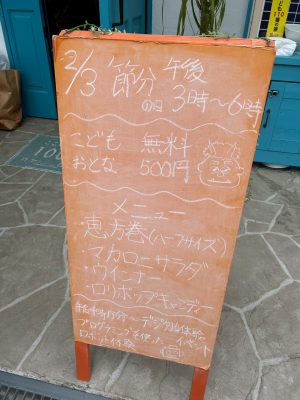 2/3 節分 午後
の日 3時〜6時
こども 無料
おとな 500円
メニュー
・恵方巻(ハーフサイズ)
・マカロニサラダ
・ウインナー
・ロリポップキャンディ
〜デジタル体験
プログラミング
イベント
ロボット体験